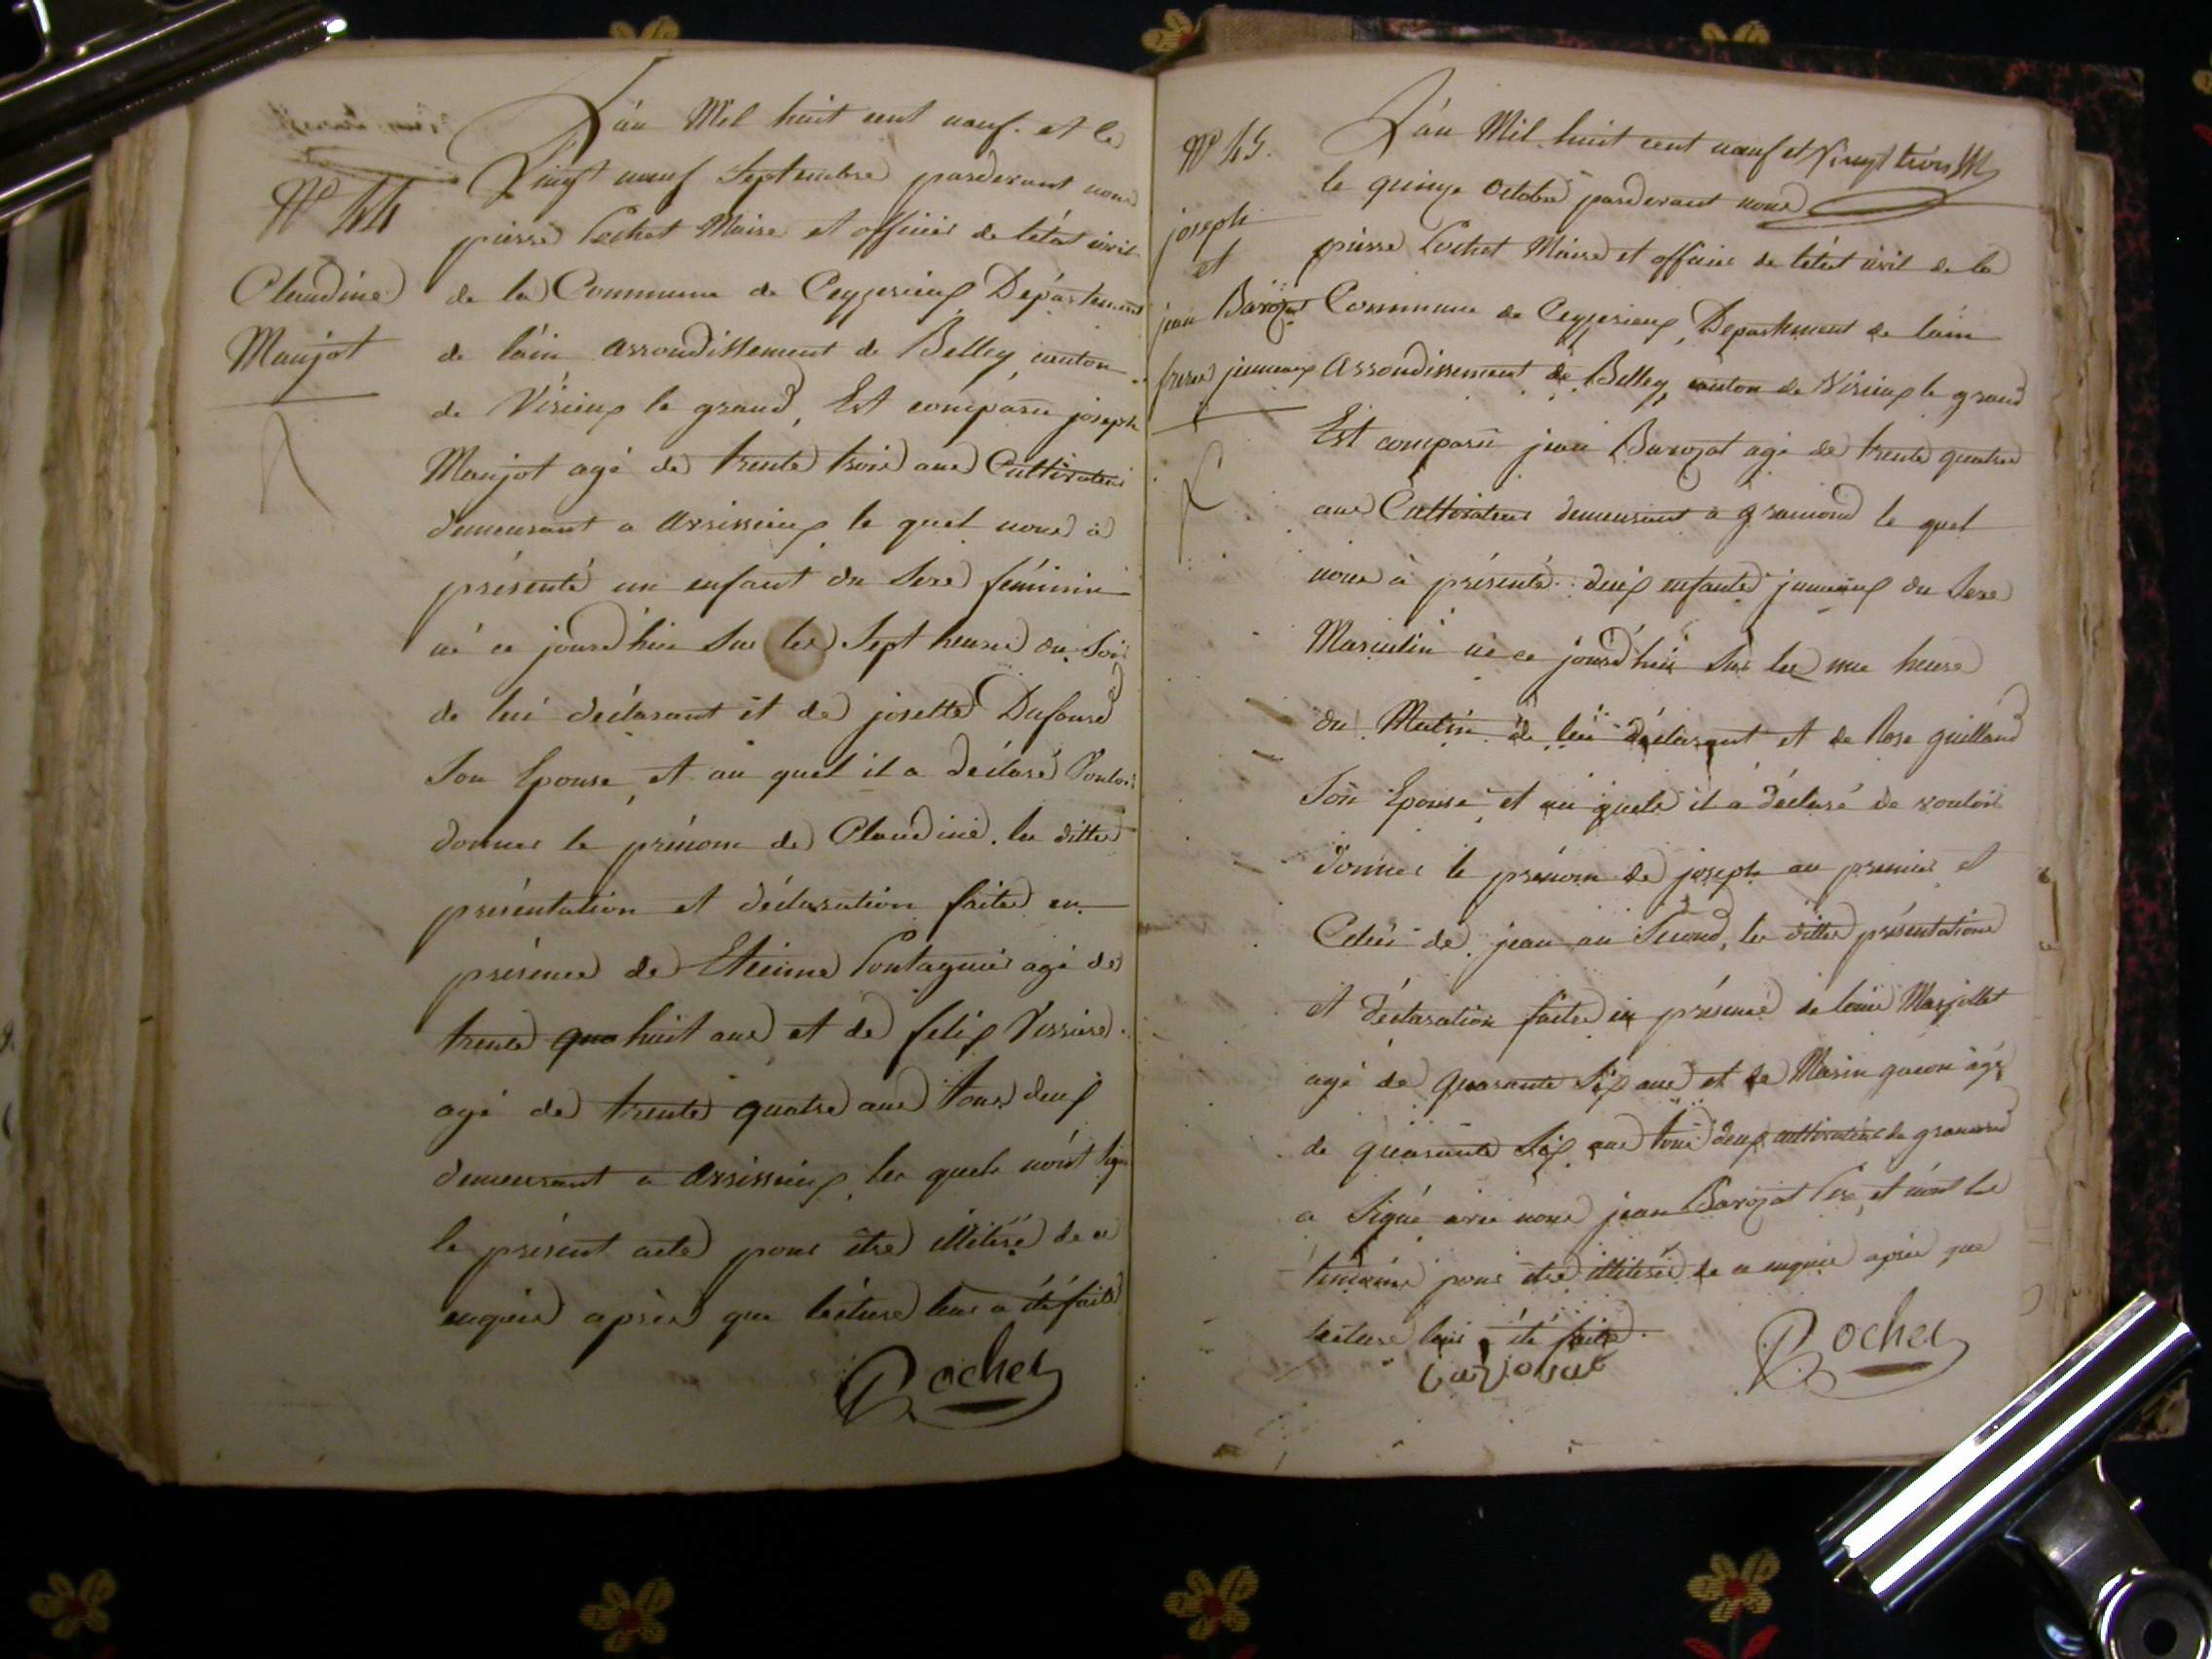 N° 44
Claudine
Maujot
L'an Mil huit cent neuf. et le
Vingt neuf Septembre pardevant nous
pierre Cochet Maire et officier de l'état civil
de la Commune de Ceyzerieux Département
de l'ain arrondissement de Belley, canton
de Virieux le grand, Est comparu joseph
Maujot agé de trente trois ans Cultivateur
demeurant a Avrissieux le quel nous à
présenté un enfant du Sexe féminin
né ce jourd'hui Sur les Sept heures du Soir
de lui déclarant et de josette Dufour
Son Epouse, et au quel il a déclaré Vouloir
donner le prénom de Claudine. les dittes
présentation et déclaration faites en
présence de Etienne Pontagnier agé de
trente qua huit ans et de felix Verriere
agé de trente quatre ans tous deux
demeurant a Avrissieux, les quels n'ont signé
le présent acte pour être illiteré de ce
enquis après que lecture leur a été faite
Cochet
N° 45.
joseph
et
jean Barozat
freres jumeaux
L'an Mil huit cent neuf et Vingt trois
le quinze Octobre pardevant nous
pierre Cochet Maire et officier de l'état civil de la
Commune de Ceyzerieux, Departement de l'ain
Arrondissement de Belley, canton de Virieux le grand
Est comparu jean Barozat agé de trente quatre
ans Cultivateur demeurant a gramond le quel
nous à présenté deux enfants jumeaux du Sexe
Masculin né ce jourd'hui Sur les une heure
du Matin de lui déclarant et de Rose guilland
Son Epouse, et au quels il a déclaré de vouloir
donner le prénom de joseph au premier et
Celui de jean au Second, les dittes présentations
et déclaration faites en présence de louis Marjollet
agé de quarante Six ans et de Marin gacon âgé
de quarante Six ans tous deux cultivateurs de gramond
a Signé avec nous jean Barozat Pere, et n'ont les
temoins pour être illiterés de ce enquis après que
lecture leur a été faite.
Cochet